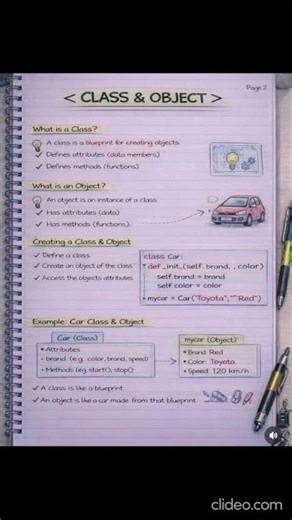 Page 2
< CLASS & OBJECT >
What is a Class?
A class is a blueprint for creating objects.
✓ Defines attributes (data members)
✓ Defines methods (functions)
What is an Object?
An object is an instance of a class
✓ Has attributes (data)
✓ Has methods (functions).
Creating a Class & Object
✓ Define a class
✓ Create an object of the class
✓ Access the objects attributes
class Car:
def_init_(self, brand, , color)
self.brand = brand
self.color = color
• mycar = Car("Toyota",""Red")
Example: Car Class & Object
Car (Class)
• Attributes
brand (e.g. color, brand, speed)
• Methods (eg. start(), stop()
mycar (Object)
• Brand: Red
• Color: Toyota
• Speed: 120 km/h
✓ A class is like a blueprint.
✓ An object is like a car made from that blueprint.
clideo.com